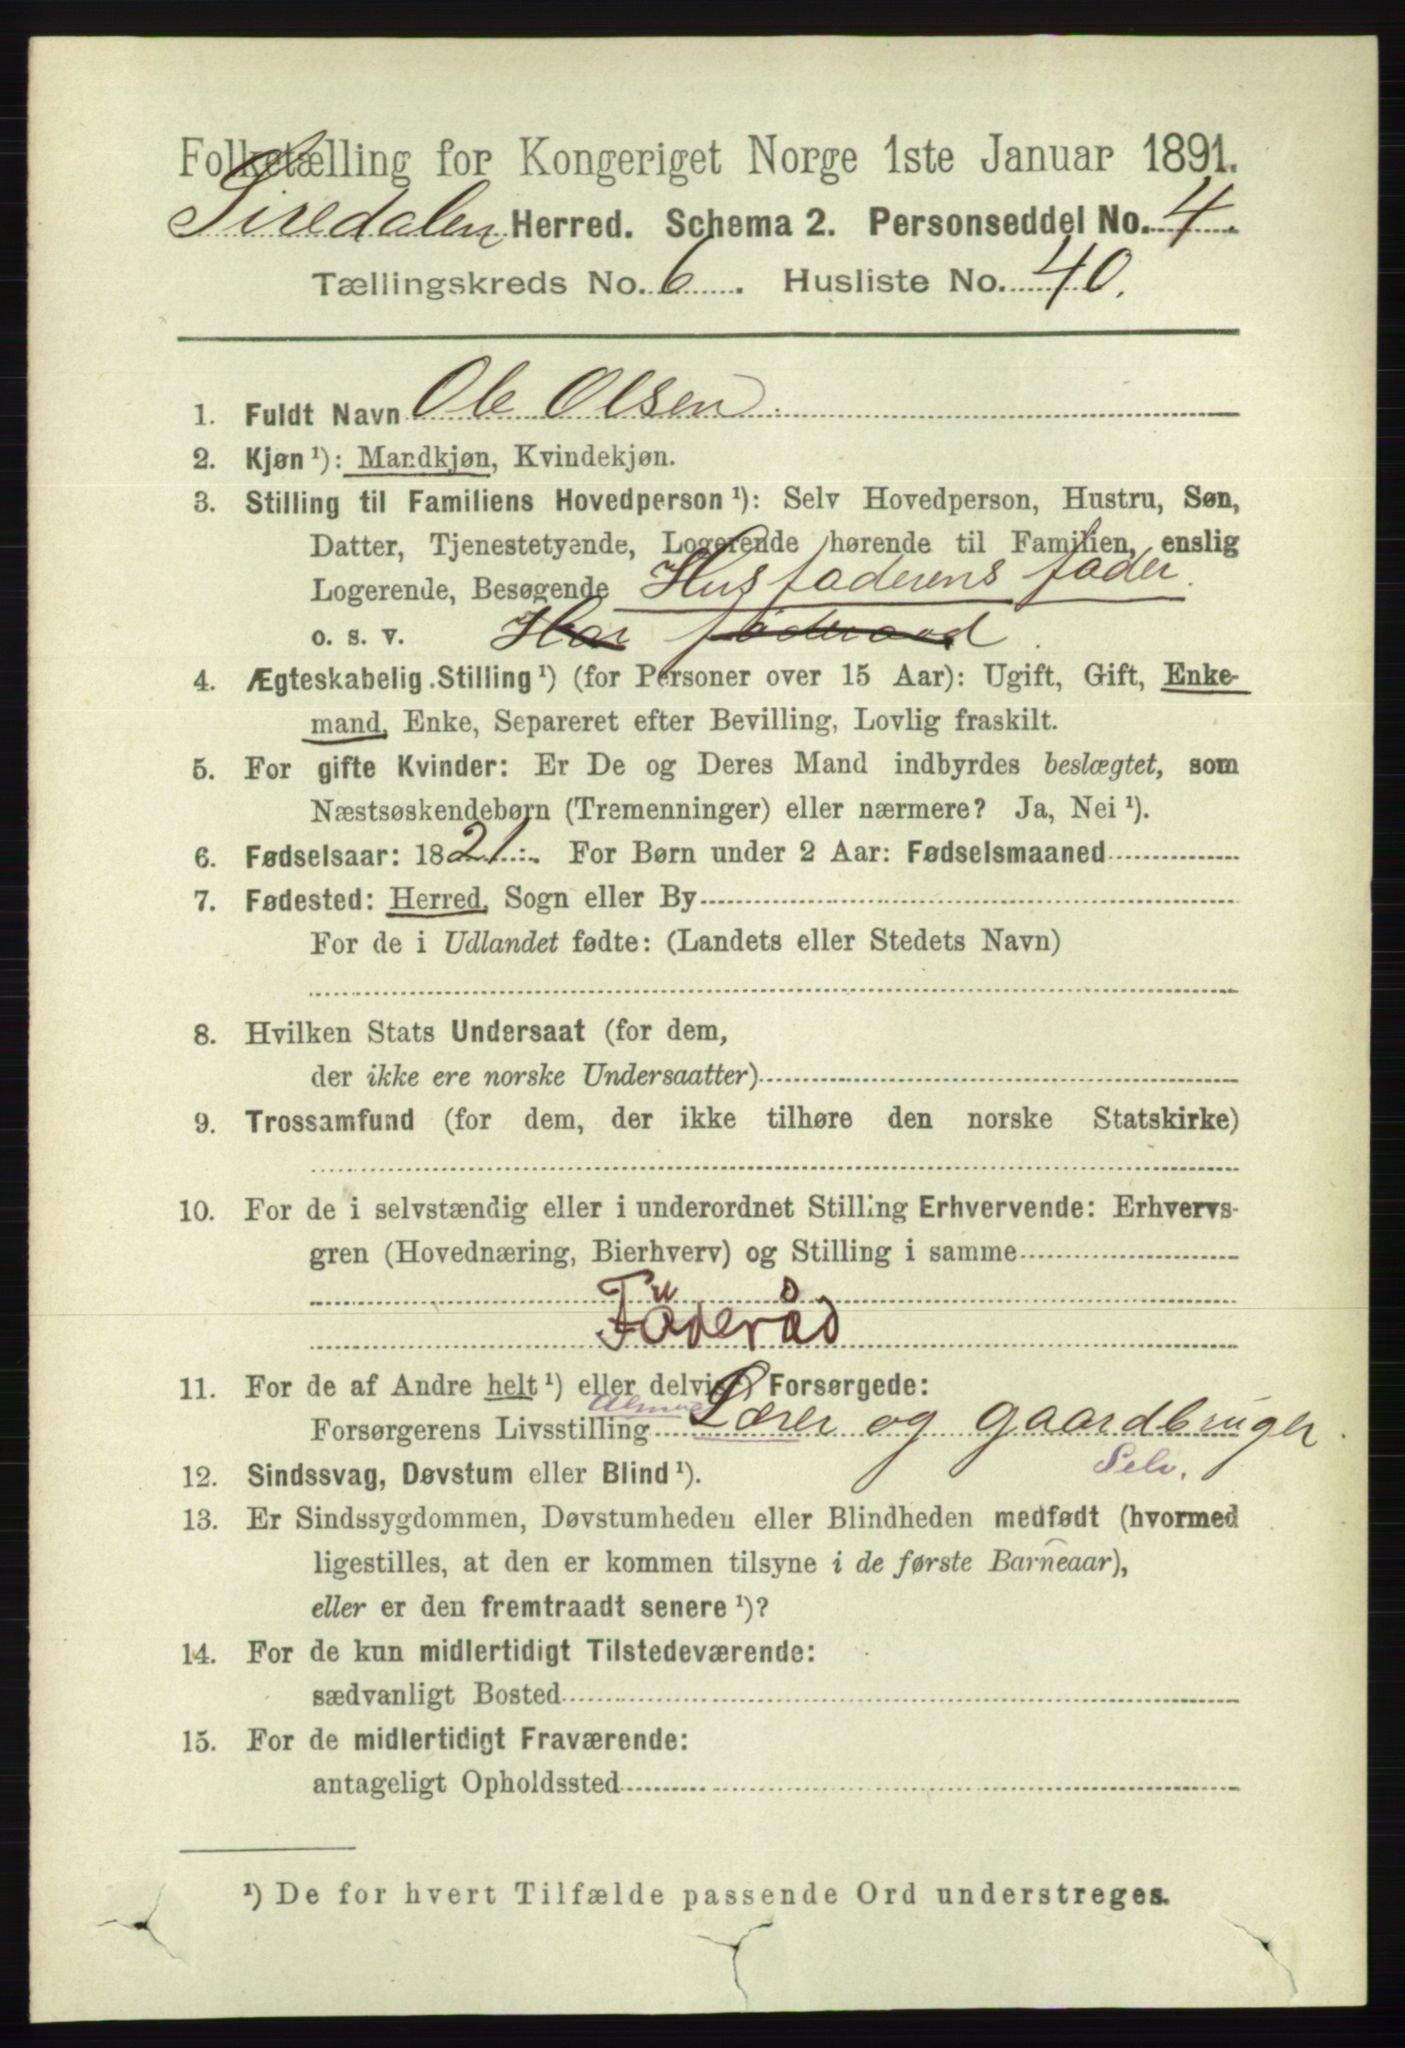 Folketælling for Kongeriget Norge 1ste Januar 1891.
Siredalen Herred. Schema 2. Personseddel No. 4.
Tællingskreds No. 6. Husliste No. 40.
1. Fuldt Navn Ole Olsen
2. Kjøn ¹): Mandkjøn, Kvindekjøn.
3. Stilling til Familiens Hovedperson ¹): Selv Hovedperson, Hustru, Søn,
Datter, Tjenestetyende, Logerende hørende til Familien, enslig
Logerende, Besøgende Husfaderens fader.
o. s. v. Har föderaad.
4. Ægteskabelig Stilling ¹) (for Personer over 15 Aar): Ugift, Gift, Enke-
mand, Enke, Separeret efter Bevilling, Lovlig fraskilt.
5. For gifte Kvinder: Er De og Deres Mand indbyrdes beslægtet, som
Næstsøskendebørn (Tremenninger) eller nærmere? Ja, Nei ¹).
6. Fødselsaar: 1821. For Børn under 2 Aar: Fødselsmaaned
7. Fødested: Herred, Sogn eller By
For de i Udlandet fødte: (Landets eller Stedets Navn)
8. Hvilken Stats Undersaat (for dem,
der ikke ere norske Undersaatter)
9. Trossamfund (for dem, der ikke tilhøre den norske Statskirke)
10. For de i selvstændig eller i underordnet Stilling Erhvervende: Erhvervs-
gren (Hovednæring, Bierhverv) og Stilling i samme
Föderåd
11. For de af Andre helt ¹) eller delvis ¹) Forsørgede:
Forsørgerens Livsstilling Lærer og gaardbruger.
Selv.
12. Sindssvag, Døvstum eller Blind ¹).
13. Er Sindssygdommen, Døvstumheden eller Blindheden medfødt (hvormed
ligestilles, at den er kommen tilsyne i de første Barneaar),
eller er den fremtraadt senere ¹)?
14. For de kun midlertidigt Tilstedeværende:
sædvanligt Bosted
15. For de midlertidigt Fraværende:
antageligt Opholdssted
¹) De for hvert Tilfælde passende Ord understreges.